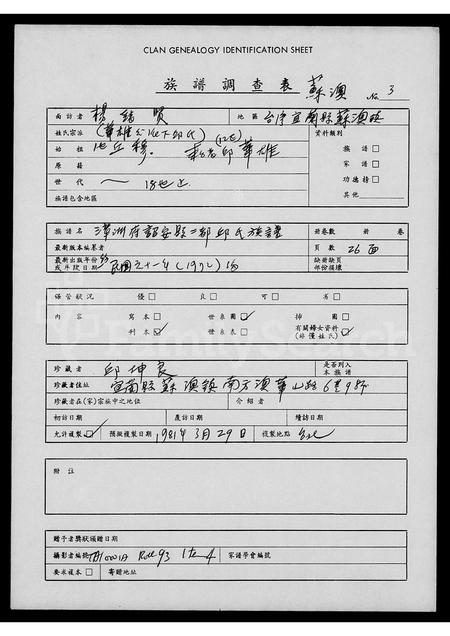 CLAN GENEALOGY IDENTIFICATION SHEET
族譜調查表 蘇澳 No. 3
面訪者 楊緒賢 地區 台灣宜蘭縣蘇澳鎮
姓氏宗派 資料類別
始祖 邱華雄 族譜□
原籍 家譜□
世代 一~18世止 功德榜□
族譜包含地區 其他
族譜名 漳洲府詔安縣二都邱氏族譜 冊卷數 冊 卷
最新版本編纂者 頁數 26面
最新出版年份或年限日期 民國六十一年(1972) 缺冊缺頁部份損壞
保管狀況 優□ 良□ 可□ 劣□
內容 寫本□ 世系圖☑ 排圖□
刊本☑ 世系表□ 有關婦女資料(非僅姓氏)☑
珍藏者 邱坤良 是否列入本族譜
珍藏者住址 宜蘭縣蘇澳鎮南方澳華山路6巷9號
珍藏者在(家)宗族中之地位 介紹者
初訪日期 複訪日期 續訪日期
允許複製☑ 預擬複製日期 1981年3月29日 複製地點
附註
贈予者獎狀頒贈日期
攝影者編號 Roll 93 Item 4 家譜學會編號
要求複本□ 寄贈地址
FamilySearch